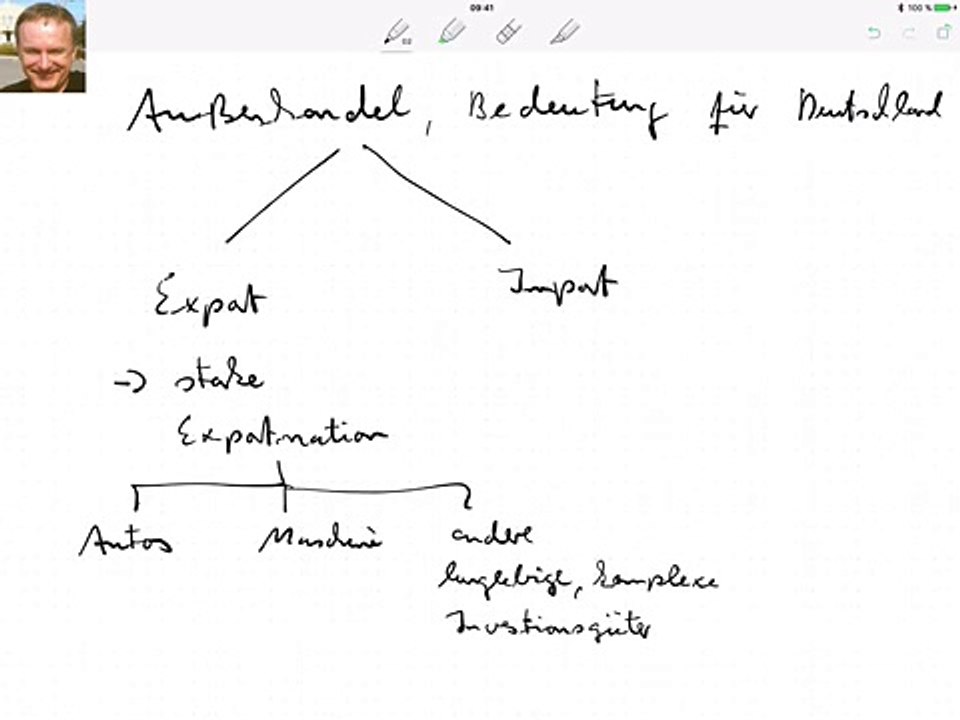 09:41
100 %
02
Außenhandel, Bedeutung für Deutschland
Export
Import
→ starke
Exportnation
Autos
Maschine
andere
langlebige, komplexe
Investionsgüter